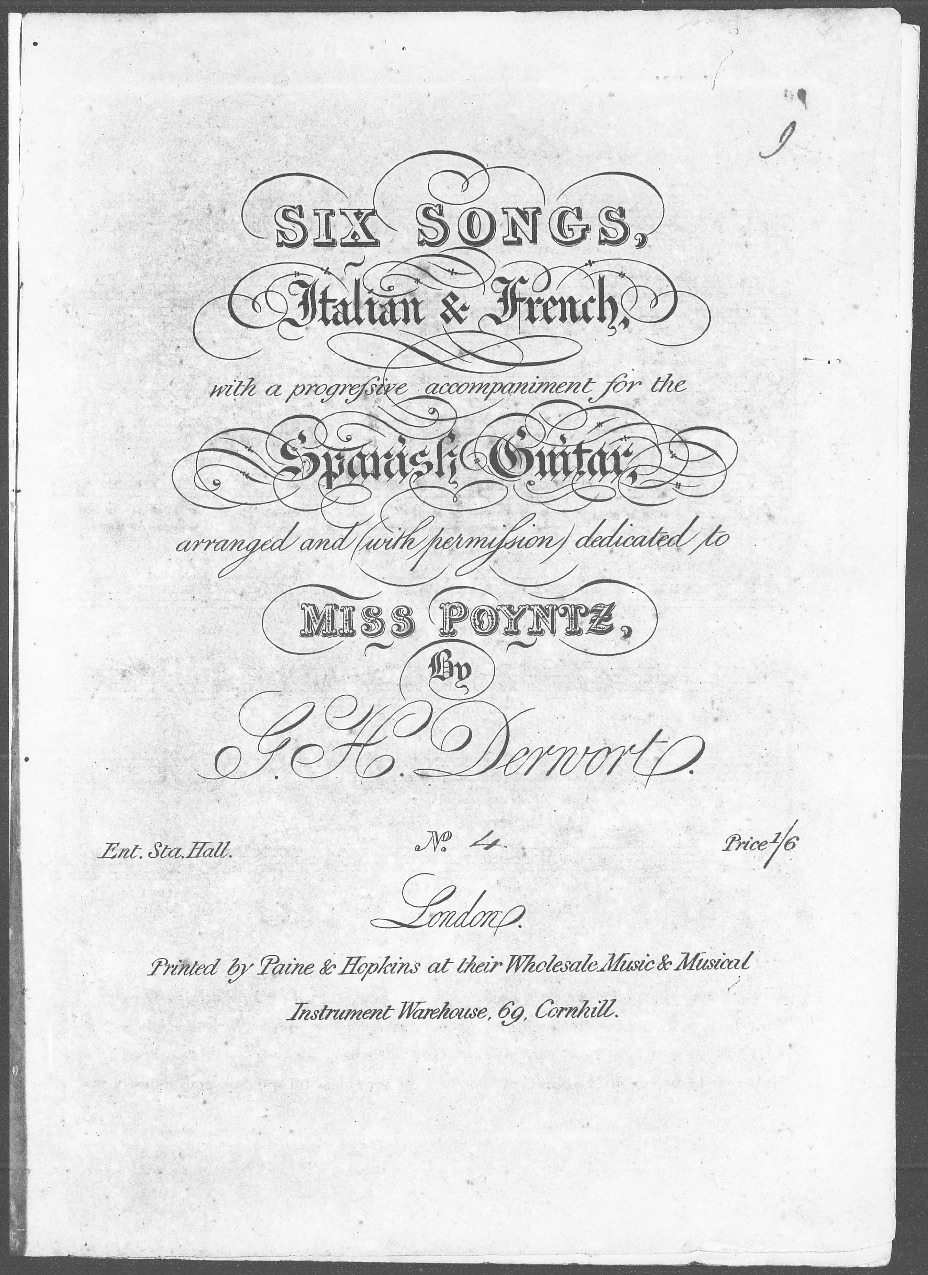 9
SIX SONGS,
Italian & French,
with a progreſsive accompaniment for the
Spanish Guitar,
arranged and (with permiſsion) dedicated to
MISS POYNTZ,
By
G. H. Derwort.
Ent. Sta. Hall. No. 4. Price 1/6
London.
Printed by Paine & Hopkins at their Wholesale Music & Musical
Instrument Warehouse, 69, Cornhill.